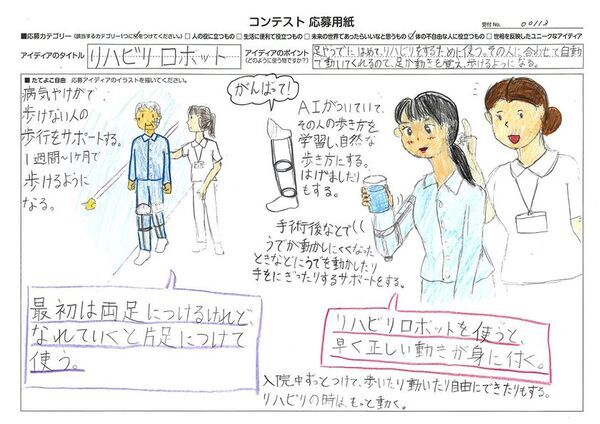 コンテスト 応募用紙
受付No. 00113
■応募カテゴリー(該当するカテゴリー1つに✓をつけてください。) □人の役に立つもの □生活に便利で役立つもの □未来の世界であったらいいなと思うもの ☑体の不自由な人に役立つもの □世相を反映したユニークなアイディア
アイディアのタイトル リハビリ ロボット
アイディアのポイント
(どのように使う物ですか?)
足やうでに、はめて、リハビリをするために使う。その人に合わせて自動
で動いてくれるので、足が動きを覚え、歩けるようになる。
■たてよこ自由 応募アイディアのイラストを描いてください。
病気やけがで
歩けない人の
歩行をサポートする。
1週間~1ヶ月で
歩けるように
なる。
がんばって!
AIがついていて、
その人の歩き方を
学習し、自然な
歩き方にする。
はげましたり
もする。
手術後などで
うでが動かしにくくなった
ときなどにうでを動かしたり
手をにぎったりするサポートをする。
最初は両足につけるけれど、
なれていくと片足につけて
使う。
リハビリロボットを使うと、
早く正しい動きが身に付く。
入院中ずっとつけて、歩いたり動いたり自由にできたりもする。
リハビリの時は、もっと動く。